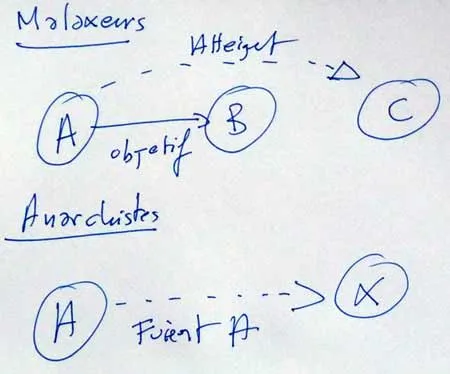 Malaxeurs
Atteigt
A
B
C
objetif
Anarchistes
A
X
Fuient A